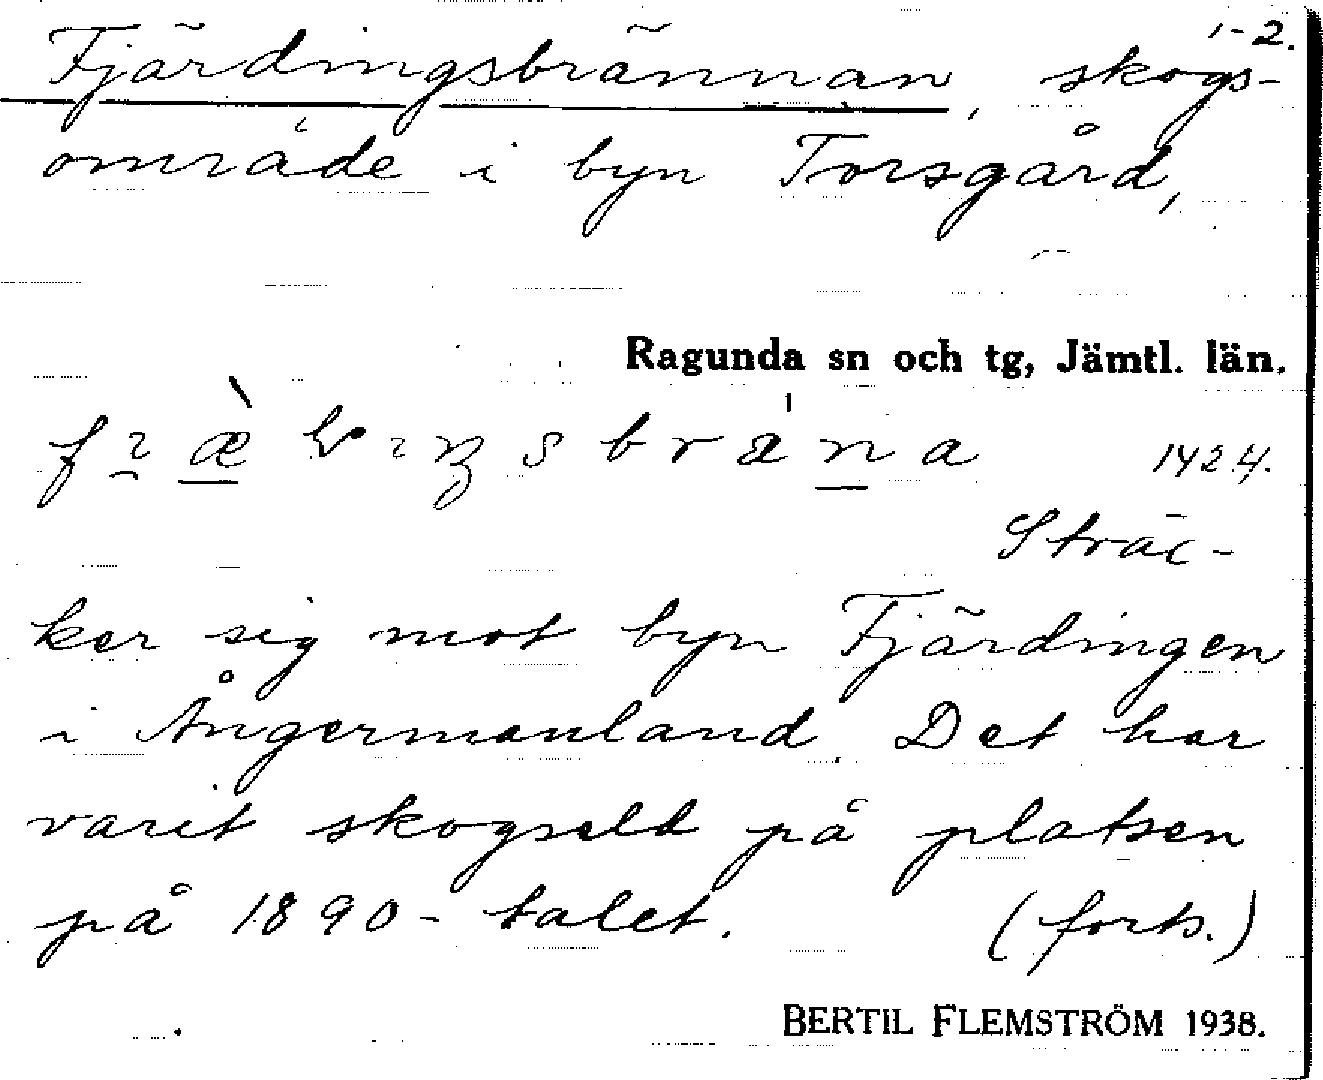 1-2.
Fjärdingsbrännan, skogs-
område i byn Torsgård,
Ragunda sn och tg, Jämtl. län.
1424.
Sträc-
ker sig mot byn Fjärdingen
i Ångermanland. Det har
varit skogseld på platsen
på 1890-talet. (forts.)
BERTIL FLEMSTRÖM 1938.